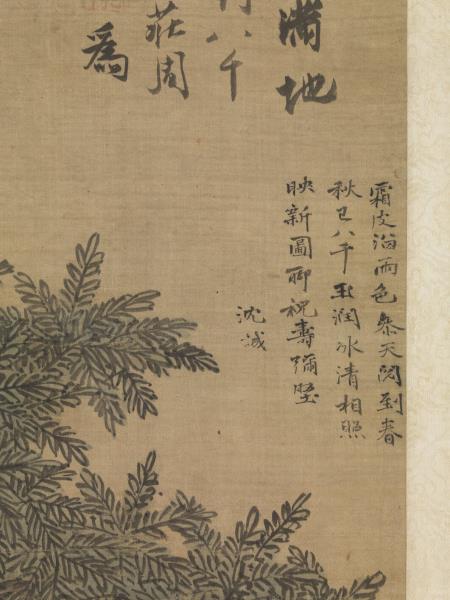 滿地
八千
莊周
爲
霜皮溜雨色參天閱到春
秋已八千玉潤冰清相照
映新圖聊祝壽彌堅
沈